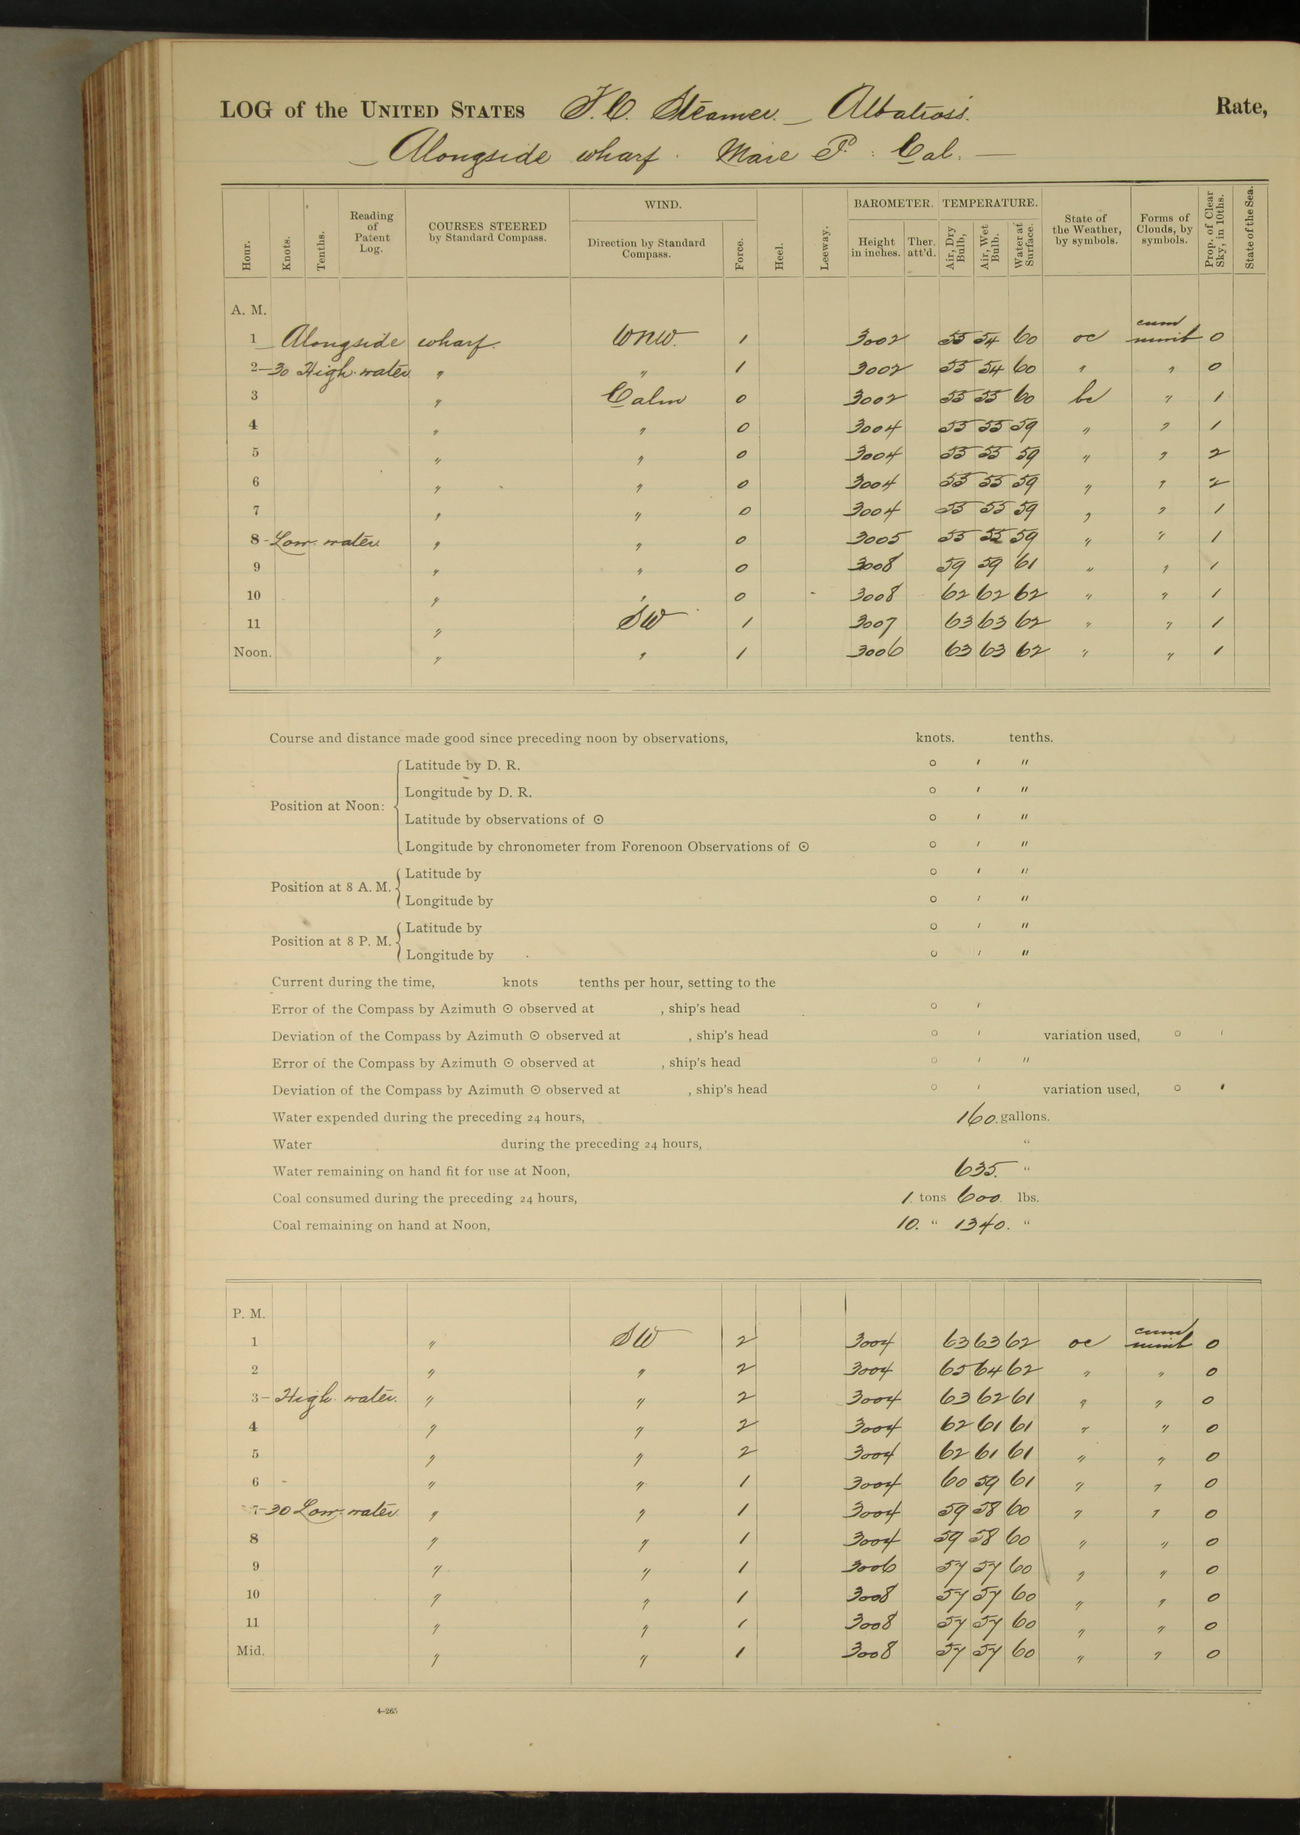 LOG of the UNITED STATES F.C. Steamer Albatross. Rate,
Alongside wharf. Mare Id: Cal.
Hour. Knots. Tenths. Reading of Patent Log. COURSES STEERED by Standard Compass. WIND. Direction by Standard Compass. Force. Heel. Leeway. BAROMETER. Height in inches. Ther. att'd. TEMPERATURE. Air, Dry Bulb, Air, Wet Bulb. Water at Surface. State of the Weather, by symbols. Forms of Clouds, by symbols. Prop. of Clear Sky, in 10ths. State of the Sea.
A. M.
1 Alongside wharf. WNW. 1 3002 55 54 60 oc cum nimb 0
2-30 High water " " 1 3002 55 54 60 " " 0
3 " Calm 0 3002 55 55 60 bc " 1
4 " " 0 3004 55 55 59 " " 1
5 " " 0 3004 55 55 59 " " 2
6 " " 0 3004 55 55 59 " " 2
7 " " 0 3004 55 55 59 " " 1
8-Low water. " " 0 3005 55 55 59 " " 1
9 " " 0 3008 59 59 61 " " 1
10 " " 0 3008 62 62 62 " " 1
11 " SW 1 3007 63 63 62 " " 1
Noon. " " 1 3006 63 63 62 " " 1
Course and distance made good since preceding noon by observations, knots. tenths.
Position at Noon: Latitude by D. R. ° ′ ″
Longitude by D. R. ° ′ ″
Latitude by observations of ☉ ° ′ ″
Longitude by chronometer from Forenoon Observations of ☉ ° ′ ″
Position at 8 A. M. Latitude by ° ′ ″
Longitude by ° ′ ″
Position at 8 P. M. Latitude by ° ′ ″
Longitude by ° ′ ″
Current during the time, knots tenths per hour, setting to the
Error of the Compass by Azimuth ☉ observed at , ship's head ° ′
Deviation of the Compass by Azimuth ☉ observed at , ship's head ° ′ variation used, ° ′
Error of the Compass by Azimuth ☉ observed at , ship's head ° ′ ″
Deviation of the Compass by Azimuth ☉ observed at , ship's head ° ′ variation used, ° ′
Water expended during the preceding 24 hours, 160. gallons.
Water during the preceding 24 hours, "
Water remaining on hand fit for use at Noon, 635. "
Coal consumed during the preceding 24 hours, 1. tons 600. lbs.
Coal remaining on hand at Noon, 10. " 1340. "
P. M.
1 " SW 2 3004 63 63 62 oc cum nimb 0
2 " " 2 3004 65 64 62 " " 0
3-High water. " " 2 3004 63 62 61 " " 0
4 " " 2 3004 62 61 61 " " 0
5 " " 2 3004 62 61 61 " " 0
6 " " 1 3004 60 59 61 " " 0
7-30 Low water " " 1 3004 59 58 60 " " 0
8 " " 1 3004 59 58 60 " " 0
9 " " 1 3006 57 57 60 " " 0
10 " " 1 3008 57 57 60 " " 0
11 " " 1 3008 57 57 60 " " 0
Mid. " " 1 3008 57 57 60 " " 0
4-265